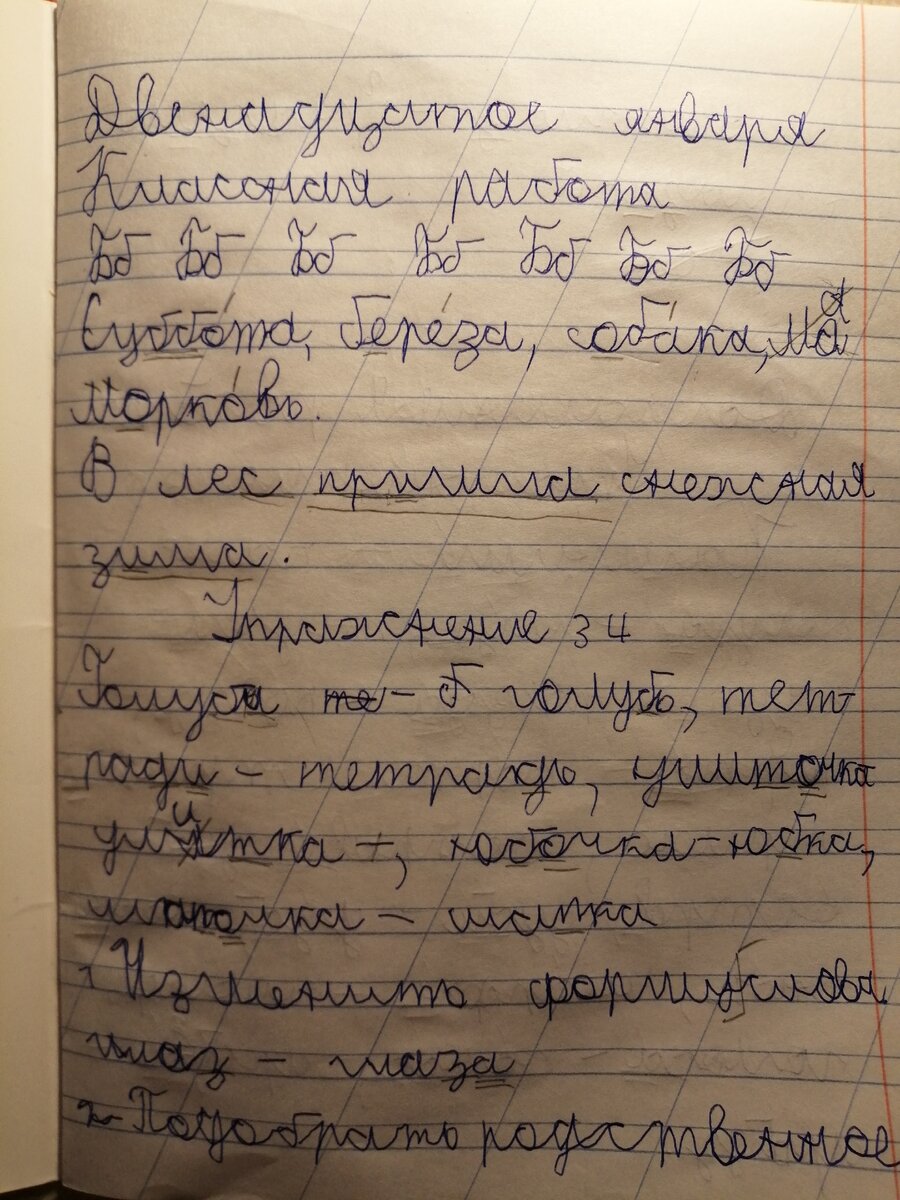 Двенадцатое января
Классная работа
Бб Бб Бб Бб Бб Бб Бб
Суббота, берёза, собака, ма
морковь.
В лес пришла снежная
зима.
Упражнение 34
Голуби – б голубь, тет-
ради – тетрадь, улиточка
улитка –, юбочка – юбка,
шапка
1. Изменить форму слова.
глаз – глаза
2. Подобрать родственное